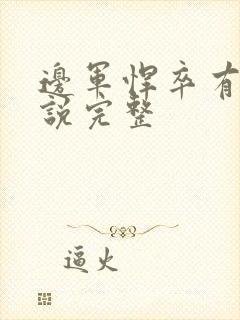 邊軍悍卒有
說完整
逼火